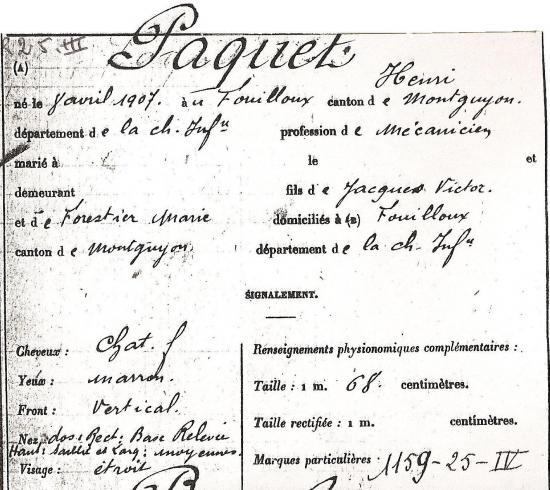 R 25. III
(A)
Paquet.
Henri
né le 8 avril 1907. à u Fouilloux canton d e Montguyon.
département d e la ch. Infre profession d e Mécanicien
marié à le et
demeurant fils d'e Jacques Victor.
et d'e Forestier Marie domiciliés à (B) Fouilloux
canton d e Montguyon département d e la ch. Infre
SIGNALEMENT.
Cheveux : Chat. f Renseignements physionomiques complémentaires :
Yeux : marron. Taille : 1 m. 68. centimètres.
Front : Vertical. Taille rectifiée : 1 m. centimètres.
Nez dos: Rect: Base Relevée
Haut: Saillie et Larg: moyennes.
Visage : étroit Marques particulières : 1159-25-IV